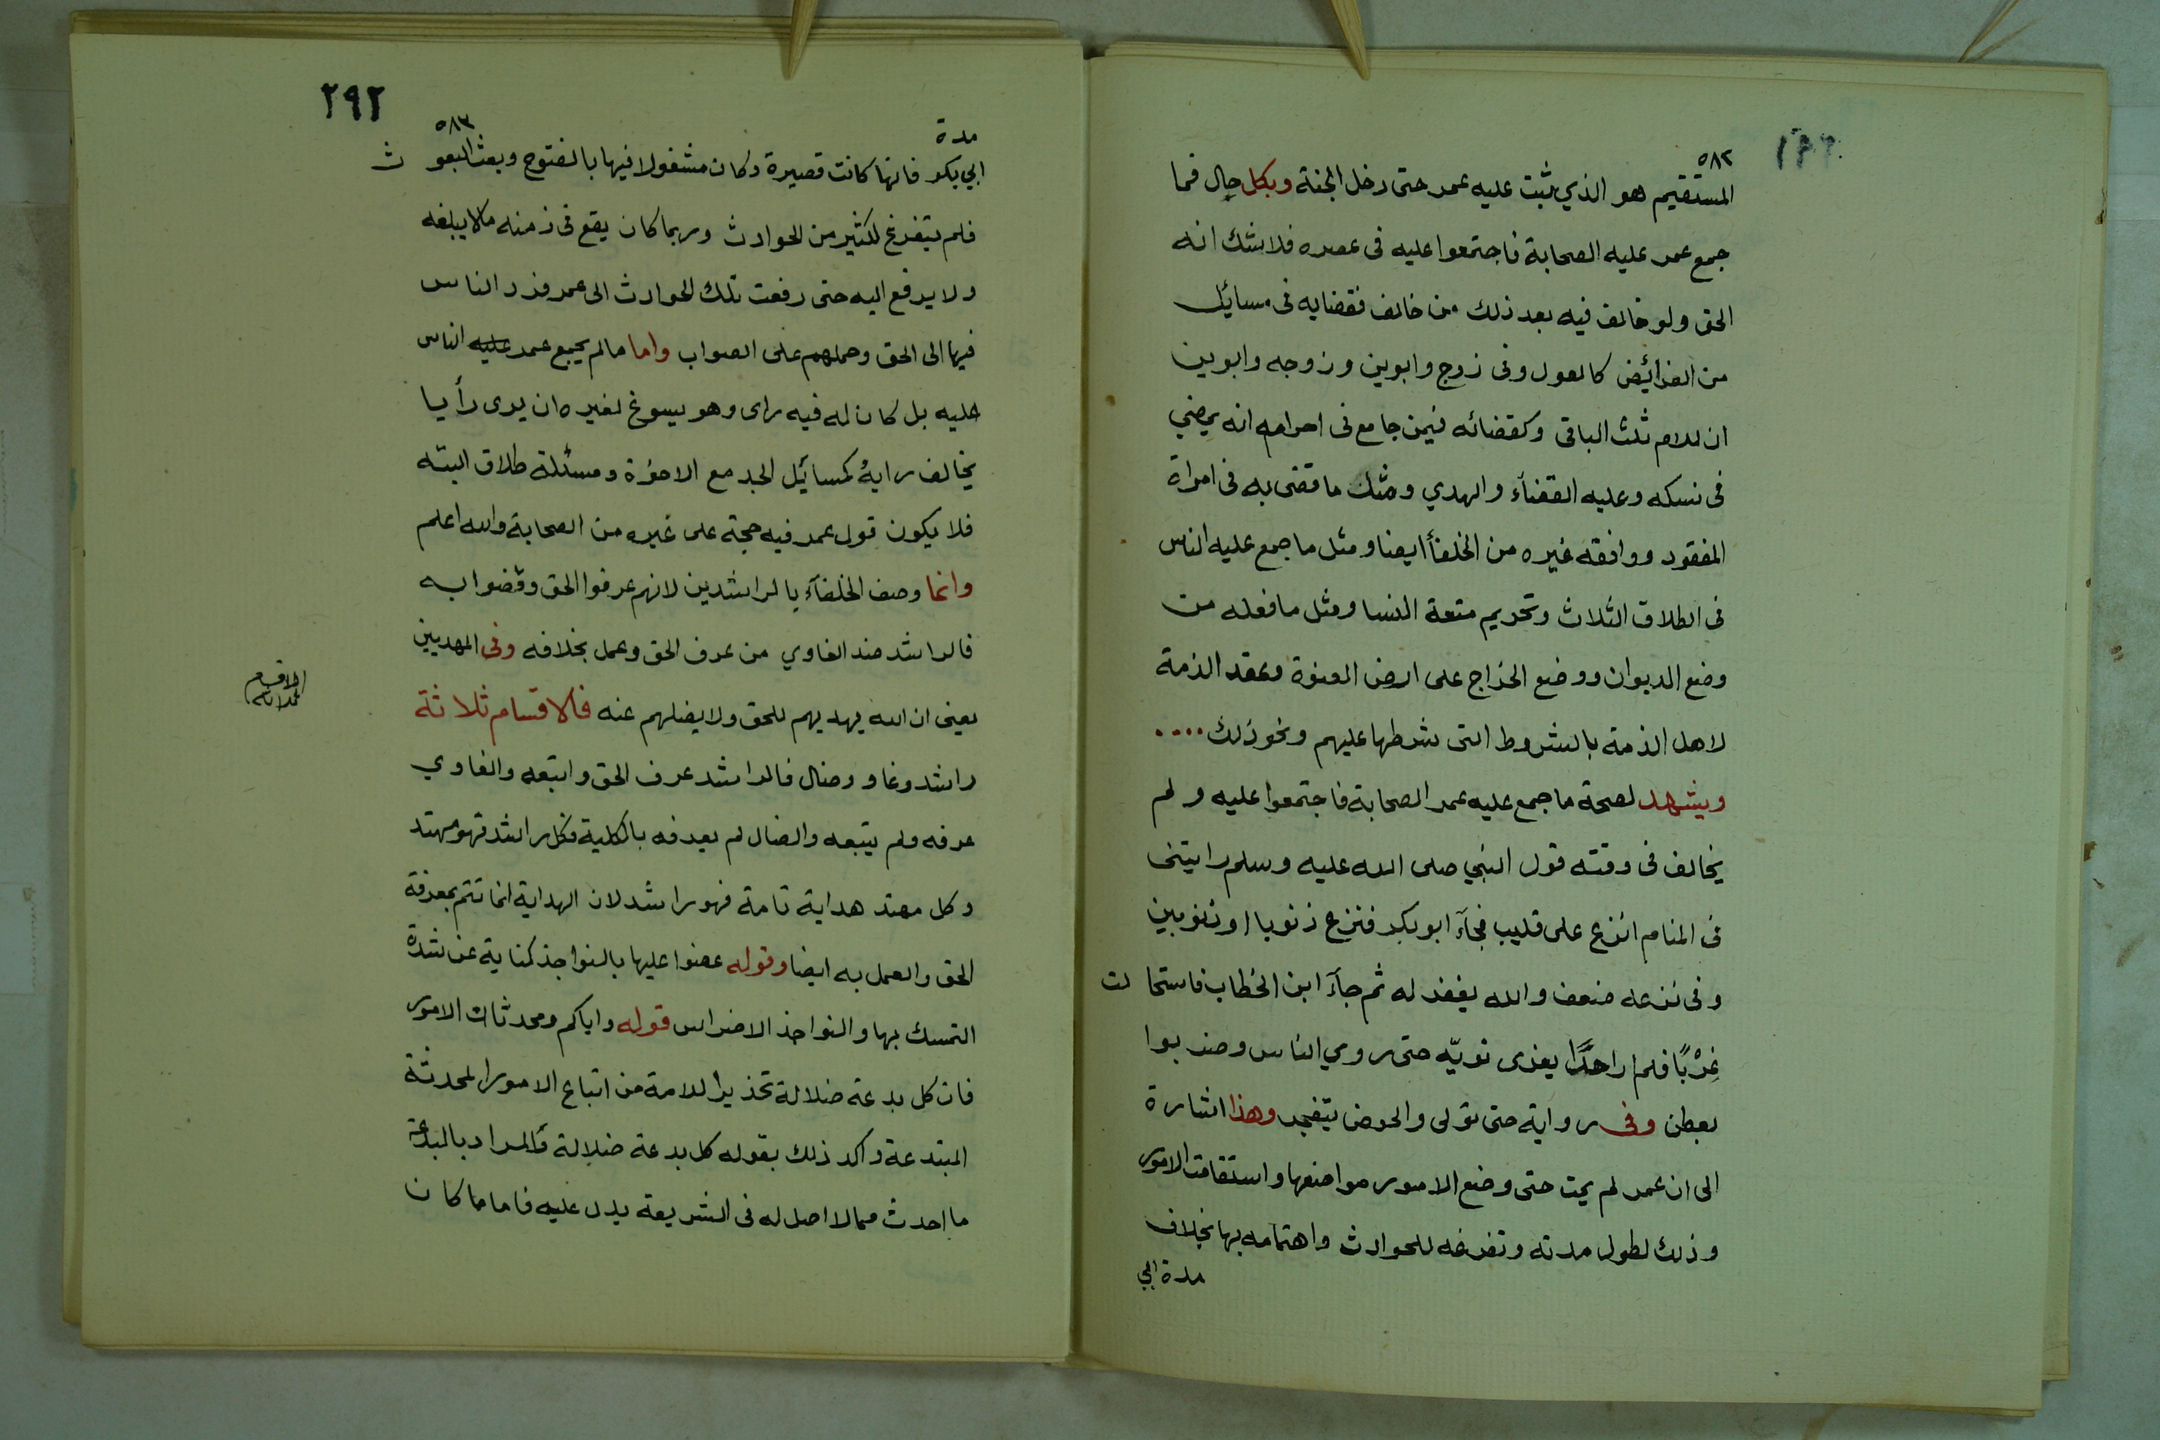 ٥٨٢
المستقيم هو الذي ثبت عليه عمر حتى دخل الجنة وبكل حال فما
جمع عمر عليه الصحابة فاجتمعوا عليه فى عصره فلا شك انه
الحق ولو خالف فيه بعد ذلك من خالف فقضايه فى مسايل
من الفرائض كالعول وفى زوج وابوين وزوجه وابوين
ان للام ثلث الباقى وكقضائه فيمن جامع فى احرامه انه يمضي
فى نسكه وعليه القضاء والهدي ومثل ما قضى به فى امراة
المفقود ووافقه غيره من الخلفاء ايضا ومثل ما جمع عليه الناس
فى الطلاق الثلاث وتحريم متعة النسا ومثل ما فعله من
وضع الديوان ووضع الخراج على ارض العنوة وعقد الذمة
لاهل الذمة بالشروط التى شرطها عليهم ونحو ذلك ....
ويشهد لصحة ما جمع عليه عمر الصحابة فاجتمعوا عليه ولم
يخالف فى وقته قول النبي صلى الله عليه وسلم رايتنى
فى المنام انزع على قليب فجآء ابو بكر فنزع ذنوبا او ذنوبين
وفى نزعه ضعف والله يغفر له ثم جآء ابن الخطاب فاستحا لت
غرْبًا فلم ار احدًا يفرى فريّه حتى روي الناس وضربوا
بعطن وفى رواية حتى تولى والحوض يتفجر وهذا اشارة
الى ان عمر لم يمت حتى وضع الامور مواضعها واستقامت الامور
وذلك لطول مدته وتفرغه للحوادث واهتمامه بها بخلاف
مدة ابي
٢٩٢
٥٨٣
مدة
ابي بكر فانها كانت قصيرة وكان مشغولا فيها بالفتوح وبعث البعو ث
فلم يتفرغ لكثير من الحوادث وربما كان يقع فى زمنه مالا يبلغه
ولا يرفع اليه حتى رفعت تلك الحوادث الى عمر فرد الناس
فيها الى الحق وحملهم على الصواب واما مالم يجمع عمر عليه الناس
عليه بل كان له فيه راى وهو يسوغ لغيره ان يرى رأيا
يخالف رايه كمسايل الجد مع الاخوة ومسئلة طلاق البتة
فلا يكون قول عمر فيه حجة على غيره من الصحابة والله اعلم
وانما وصف الخلفآء بالراشدين لانهم عرفوا الحق وقضوا به
فالراشد ضد الغاوي من عرف الحق وعمل بخلافه وفى المهديين
يعنى ان الله يهديهم للحق ولا يضلهم عنه فالاقسام ثلاثة
الاقسام
ثلاثة
راشد وغاو وضال فالراشد عرف الحق واتبعه والغاوي
عرفه ولم يتبعه والضال لم يعرفه بالكلية فكل راشد فهو مهتد
وكل مهتد هداية تامة فهو راشد لان الهداية انما تتم بمعرفة
الحق والعمل به ايضا وقوله عضوا عليها بالنواجذ كناية عن شدة
التمسك بها والنواجذ الاضراس قوله واياكم ومحدثات الامور
فان كل بدعة ضلالة تحذيرا للامة من اتباع الامور المحدثة
المبتدعة واكد ذلك بقوله كل بدعة ضلالة فالمراد بالبدعة
ما احدث مما لا اصل له فى الشريعة يدل عليه فاما ما كان